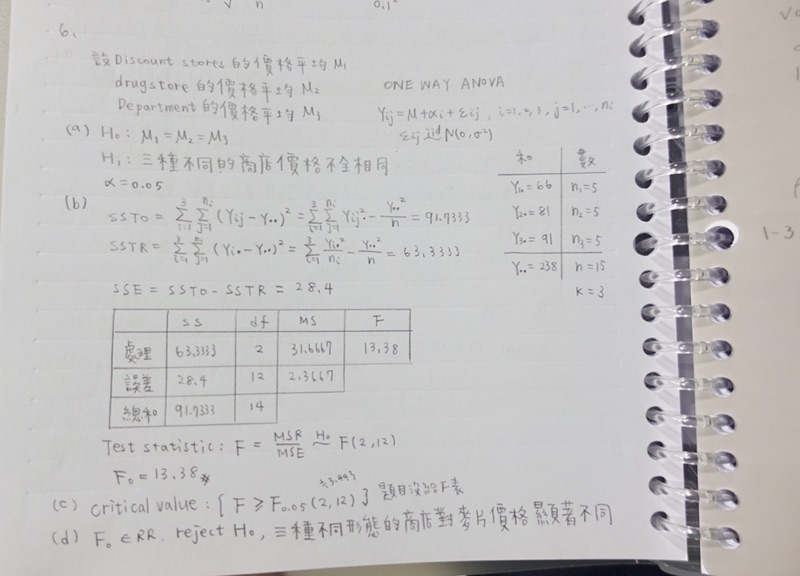 √ n 0.1²
6.
設 Discount stores 的價格平均 M₁
drugstore 的價格平均 M₂
Department 的價格平均 M₃
ONE WAY ANOVA
Yij = M+αi+εij, i=1,2,3, j=1,…,ni
εij ~iid N(0,σ²)
(a) H₀: M₁ = M₂ = M₃
H₁: 三種不同的商店價格不全相同
α = 0.05
和 數
Y₁. = 66 n₁=5
Y₂. = 81 n₂=5
Y₃. = 91 n₃=5
Y.. = 238 n=15
K=3
(b)
SSTO = Σ(i=1→3) Σ(j=1→ni) (Yij - Y..)² = Σ(i=1→3) Σ(j=1→ni) Yij² - Y..²/n = 91.7333
SSTR = Σ(i=1→3) Σ(j=1→ni) (Yi. - Y..)² = Σ(i=1→3) Yi.²/ni - Y..²/n = 63.3333
SSE = SSTO - SSTR = 28.4
SS df MS F
處理 63.3333 2 31.6667 13.38
誤差 28.4 12 2.3667
總和 91.7333 14
Test statistic: F = MSR/MSE ~H₀ F(2,12)
F₀ = 13.38
(c) critical value: { F ≥ F₀.₀₅(2,12) } 題目沒給F表
(d) F₀ ∈ RR, reject H₀, 三種不同形態的商店對麥片價格顯著不同
1-3